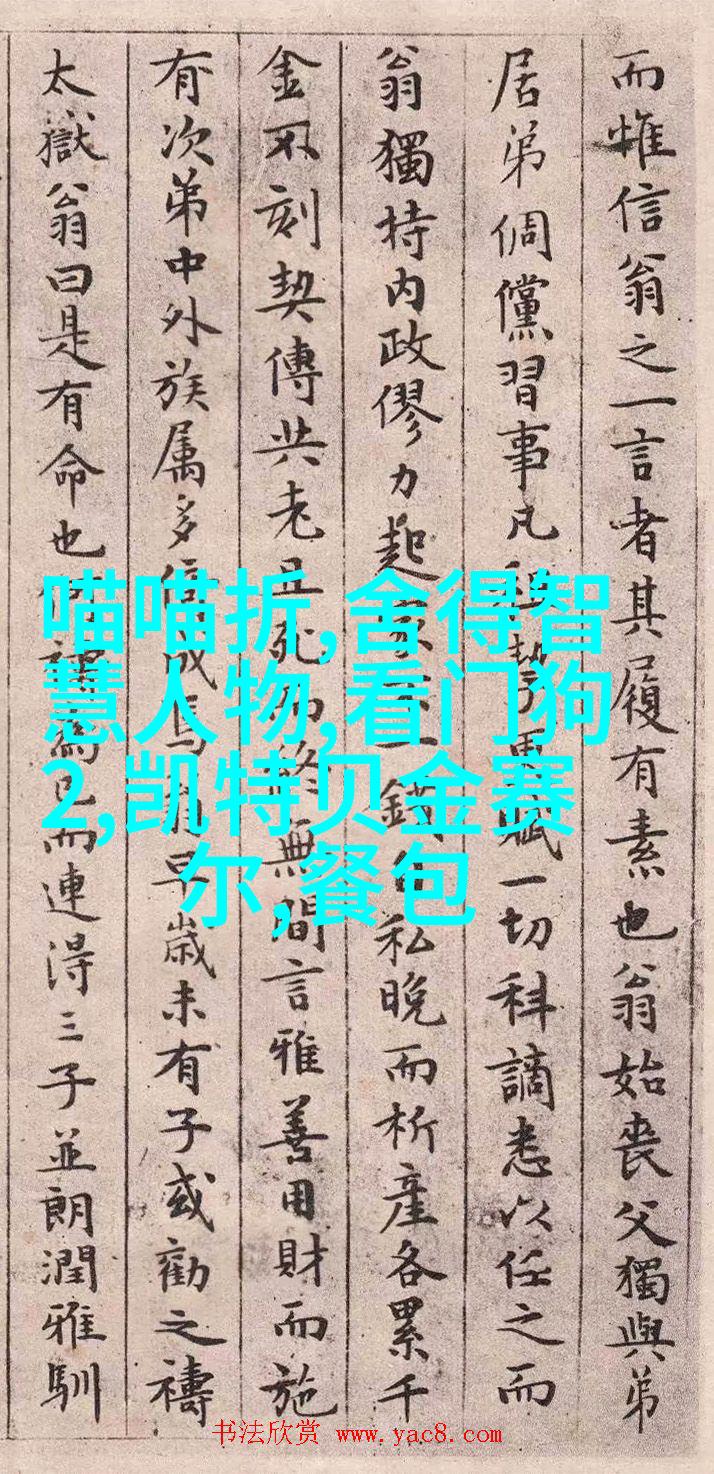 而惟信翁之一言者其履有素也翁始喪父獨與弟
居弟倜儻習事凡勢更賦一切科謫悉以任之而
翁獨持内政僇力起一錢自私晚而析產各累千
金不刻契傳共老且死而終無間言雅善用財而施
有次弟中外族属多倚成焉翁早歲未有子或勸之禱
太獄翁曰是有命也何禱為已而連得三子並朗潤雅馴
喵喵折,舍得智
慧人物,看门狗
2,凯特贝金赛
尔,餐包
书法欣赏 www.yac8.com